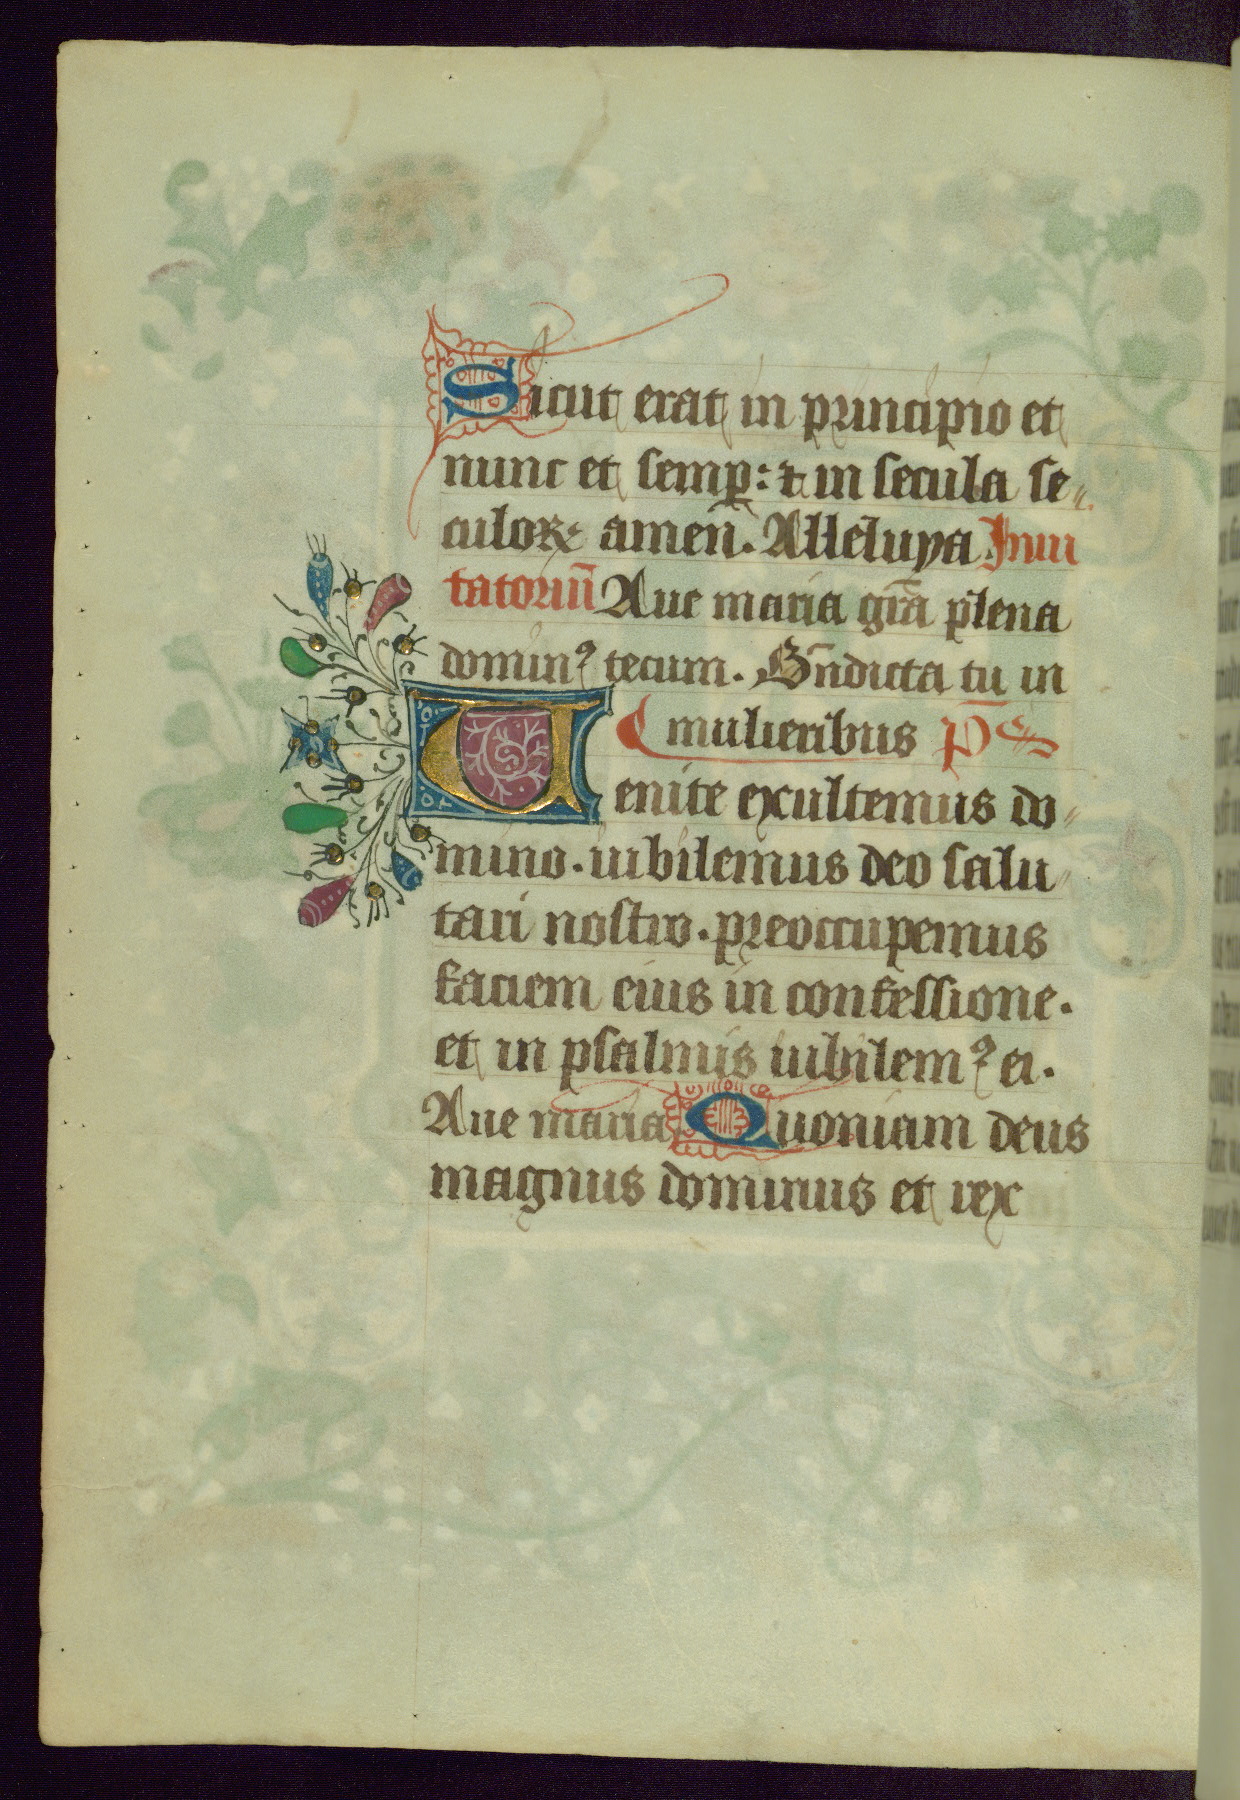 Sicut erat in principio et
nunc et semp̲: ⁊ in secula se⸗
culoꝝ amen̄. Alleluya Inui
tatoriu̅ Aue maria gr̅a plena
dominꝰ tecum. Bn̅dicta tu in
mulieribus p̅s
Uenite excultemus do⸗
mino. iubilemus deo salu⸗
tari nostro. preoccupemus
faciem eius in confessione.
et in psalmis iubilemꝰ ei.
Aue maria Quoniam deus
magnus dominus et rex